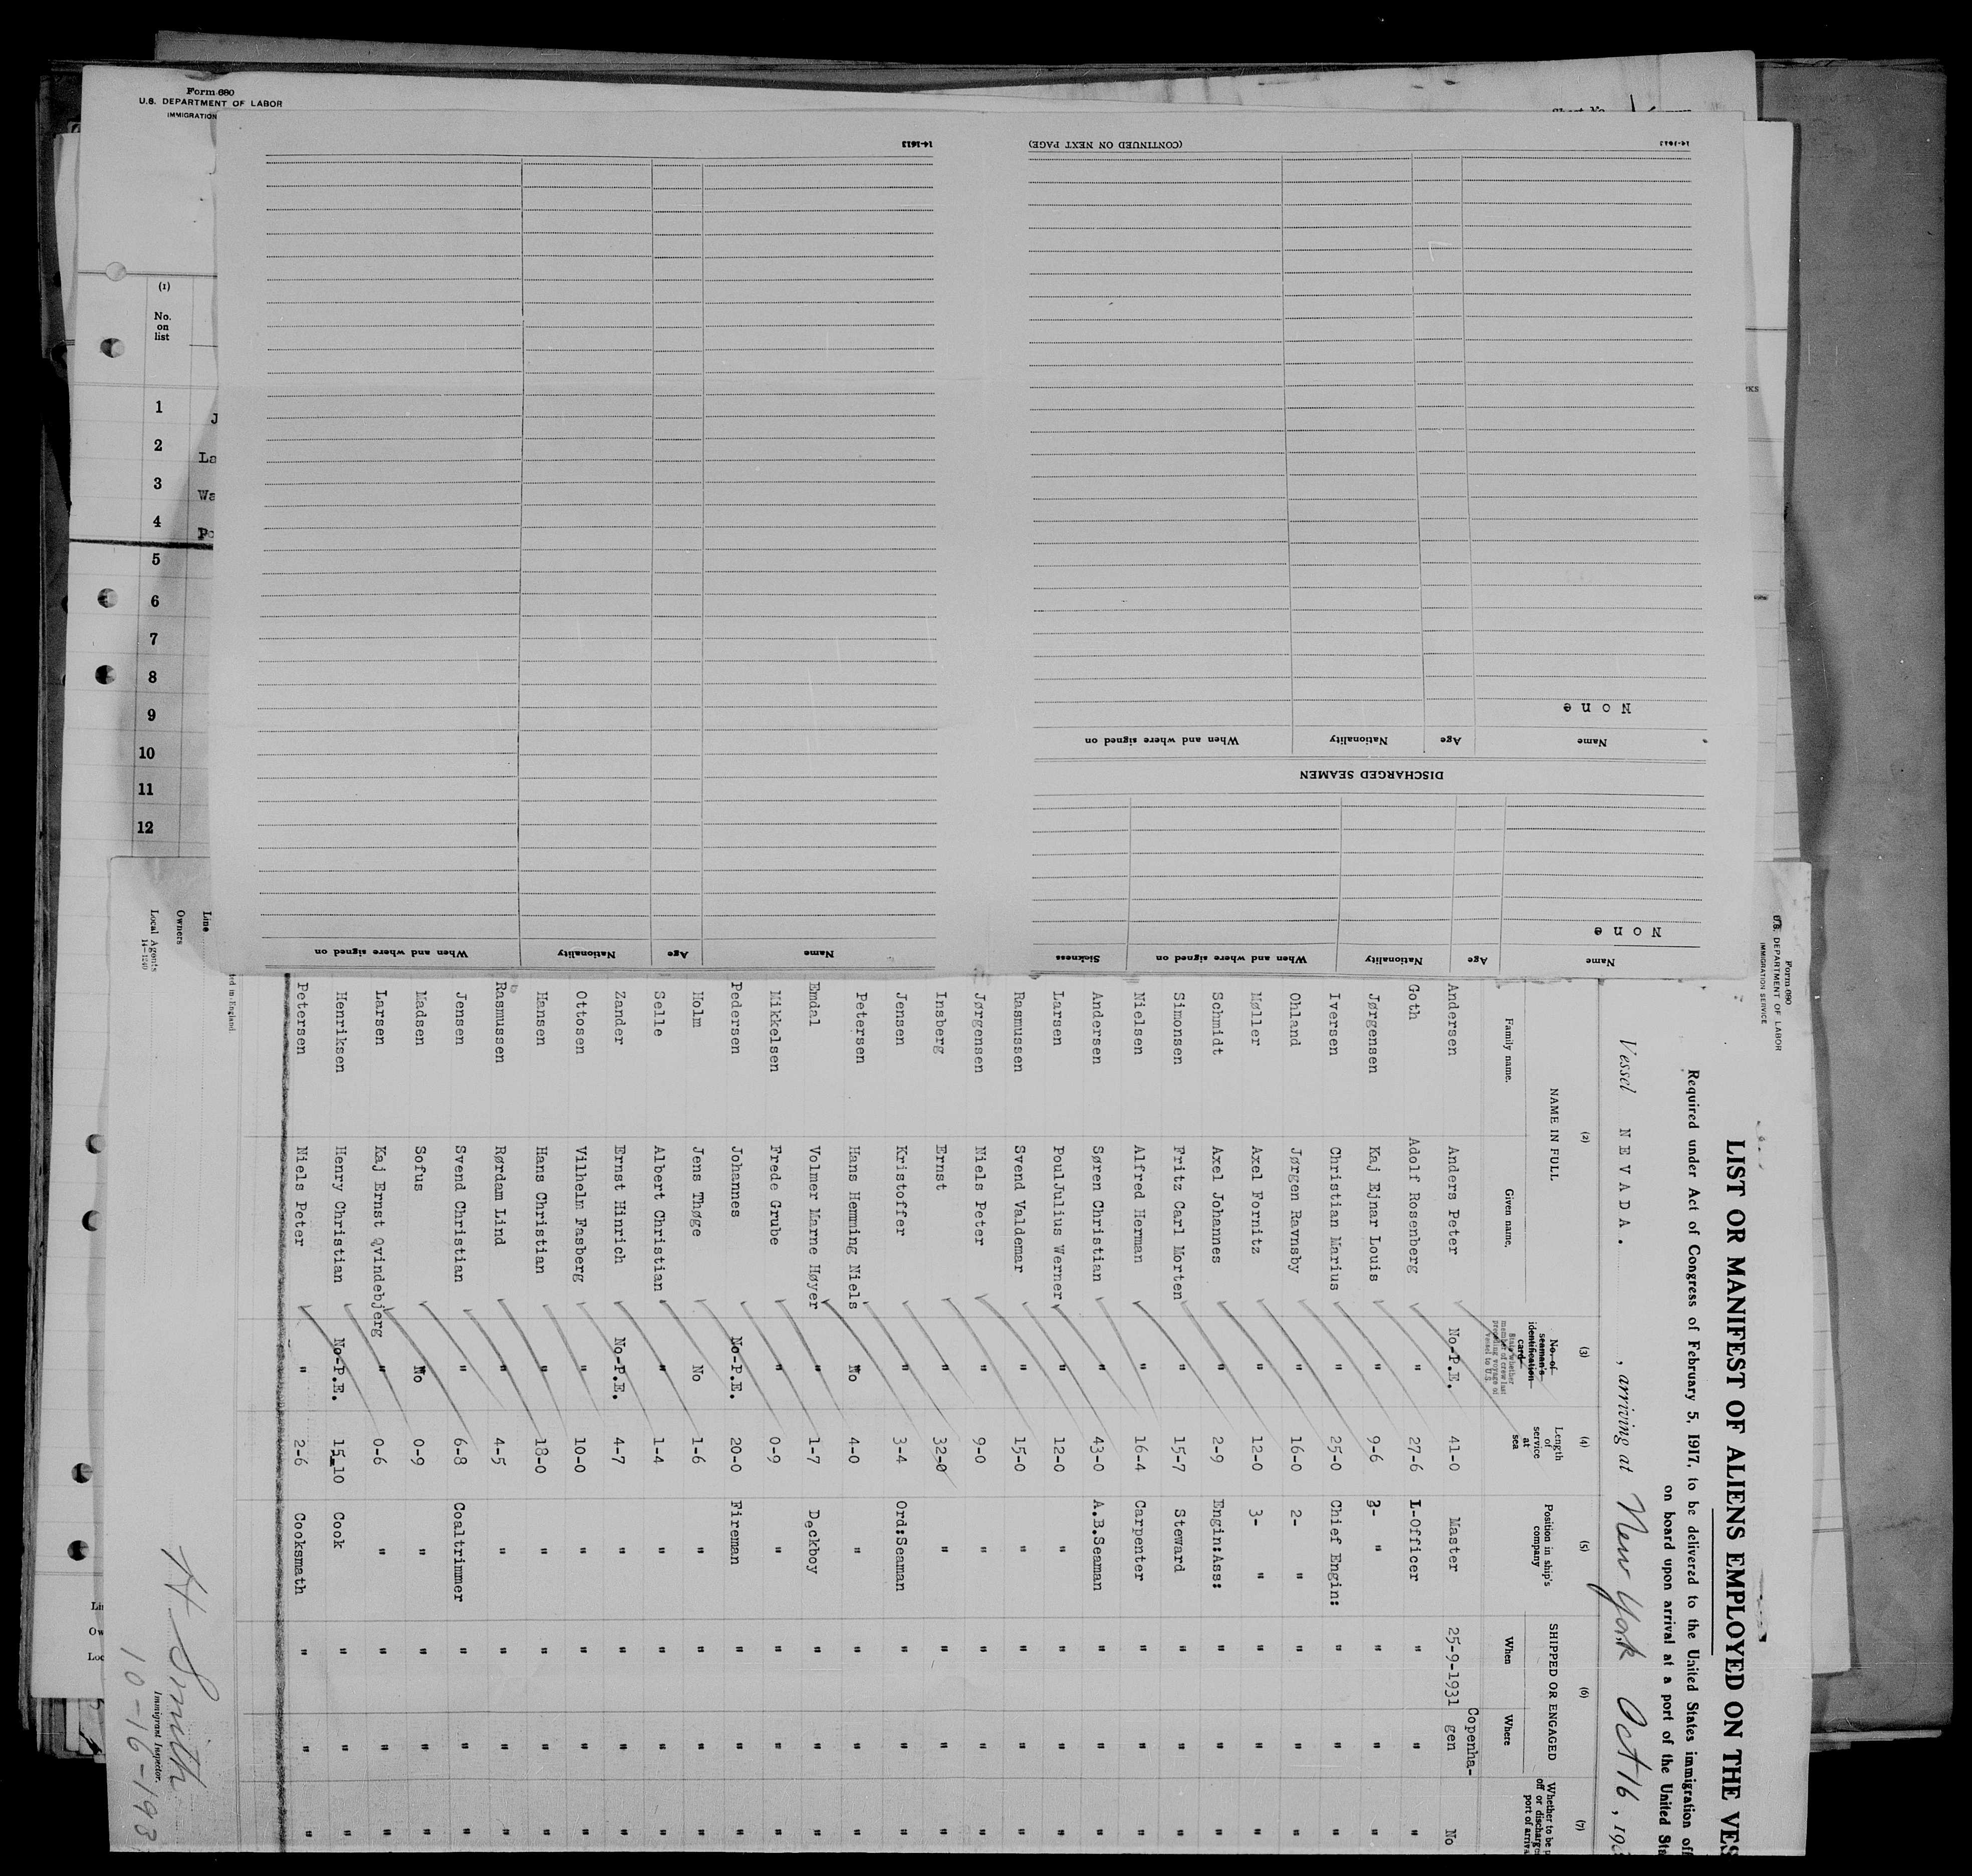 Form 680
U.S. DEPARTMENT OF LABOR
IMMIGRATION
(1)
No.
on
list
1
2 La
3 Wa
4 Po
5
6
7
8
9
10
11
12
Name Age Nationality When and where signed on Sickness
None
DISCHARGED SEAMEN
Name Age Nationality When and where signed on
None
(CONTINUED ON NEXT PAGE)
Name Age Nationality When and where signed on
14-1613
Form 680
U.S. DEPARTMENT OF LABOR
IMMIGRATION SERVICE
LIST OR MANIFEST OF ALIENS EMPLOYED ON THE VES
Required under Act of Congress of February 5, 1917, to be delivered to the United States immigration off
on board upon arrival at a port of the United Sta
Vessel NEVADA. , arriving at New York Oct 16, 193
(2) (3) (4) (5) (6) (7)
NAME IN FULL
Family name. Given name.
No. of seaman's identification card
State whether member of crew last preceding voyage of vessel to U.S.
Length of service at sea
Position in ship's company
SHIPPED OR ENGAGED
When Where
Whether to be
off or discharge
port of arriva
Andersen Anders Peter No-P.E. 41-0 Master 25-9-1931 Copenha-gen No
Goth Adolf Rosenberg " 27-6 1-Officer " " "
Jørgensen Kaj Ejnar Louis " 9-6 3- " " " "
Iversen Christian Marius " 25-0 Chief Engin: " " "
Ohland Jørgen Ravnsby " 16-0 2- " " " "
Møller Axel Fornitz " 12-0 3- " " " "
Schmidt Axel Johannes " 2-9 Engin:Ass: " " "
Simonsen Fritz Carl Morten " 15-7 Steward " " "
Nielsen Alfred Herman " 16-4 Carpenter " " "
Andersen Søren Christian " 43-0 A.B.Seaman " " "
Larsen PoulJulius Werner " 12-0 " " " "
Rasmussen Svend Valdemar " 15-0 " " " "
Jørgensen Niels Peter " 9-0 " " " "
Insberg Ernst 32-0 " " " "
Jensen Kristoffer " 3-4 Ord:Seaman " " "
Petersen Hans Hemming Niels No 4-0 " " " "
Emdal Volmer Marne Høyer " 1-7 Deckboy " " "
Mikkelsen Frede Grube " 0-9 " " " "
Pedersen Johannes No-P.E. 20-0 Fireman " " "
Holm Jens Thøge No 1-6 " " " "
Selle Albert Christian " 1-4 " " " "
Zander Ernst Hinrich No-P.E. 4-7 " " " "
Ottosen Vilhelm Fasberg " 10-0 " " " "
Hansen Hans Christian " 18-0 " " " "
Rasmussen Rørdam Lind " 4-5 " " " "
Jensen Svend Christian " 6-8 Coaltrimmer " " "
Madsen Sofus No 0-9 " " " "
Larsen Kaj Ernst Qvindebjerg " 0-6 " " " "
Henriksen Henry Christian No-P.E. 15_10 Cook " " "
Petersen Niels Peter " 2-6 Cooksmath " " "
Line
Owners
Local Agents
14-1240
H Smith
Immigrant Inspector.
10-16-193